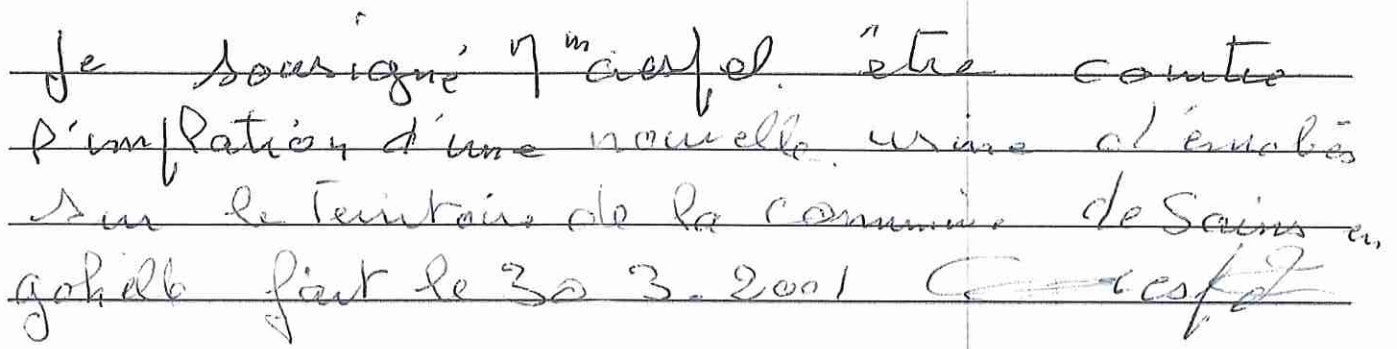 Je sousigné Mm être contre
l'implation d'une nouvelle usine d'enrobés
sur le Territoire de la commune de Sains en
gohelle fait le 30 3. 2001